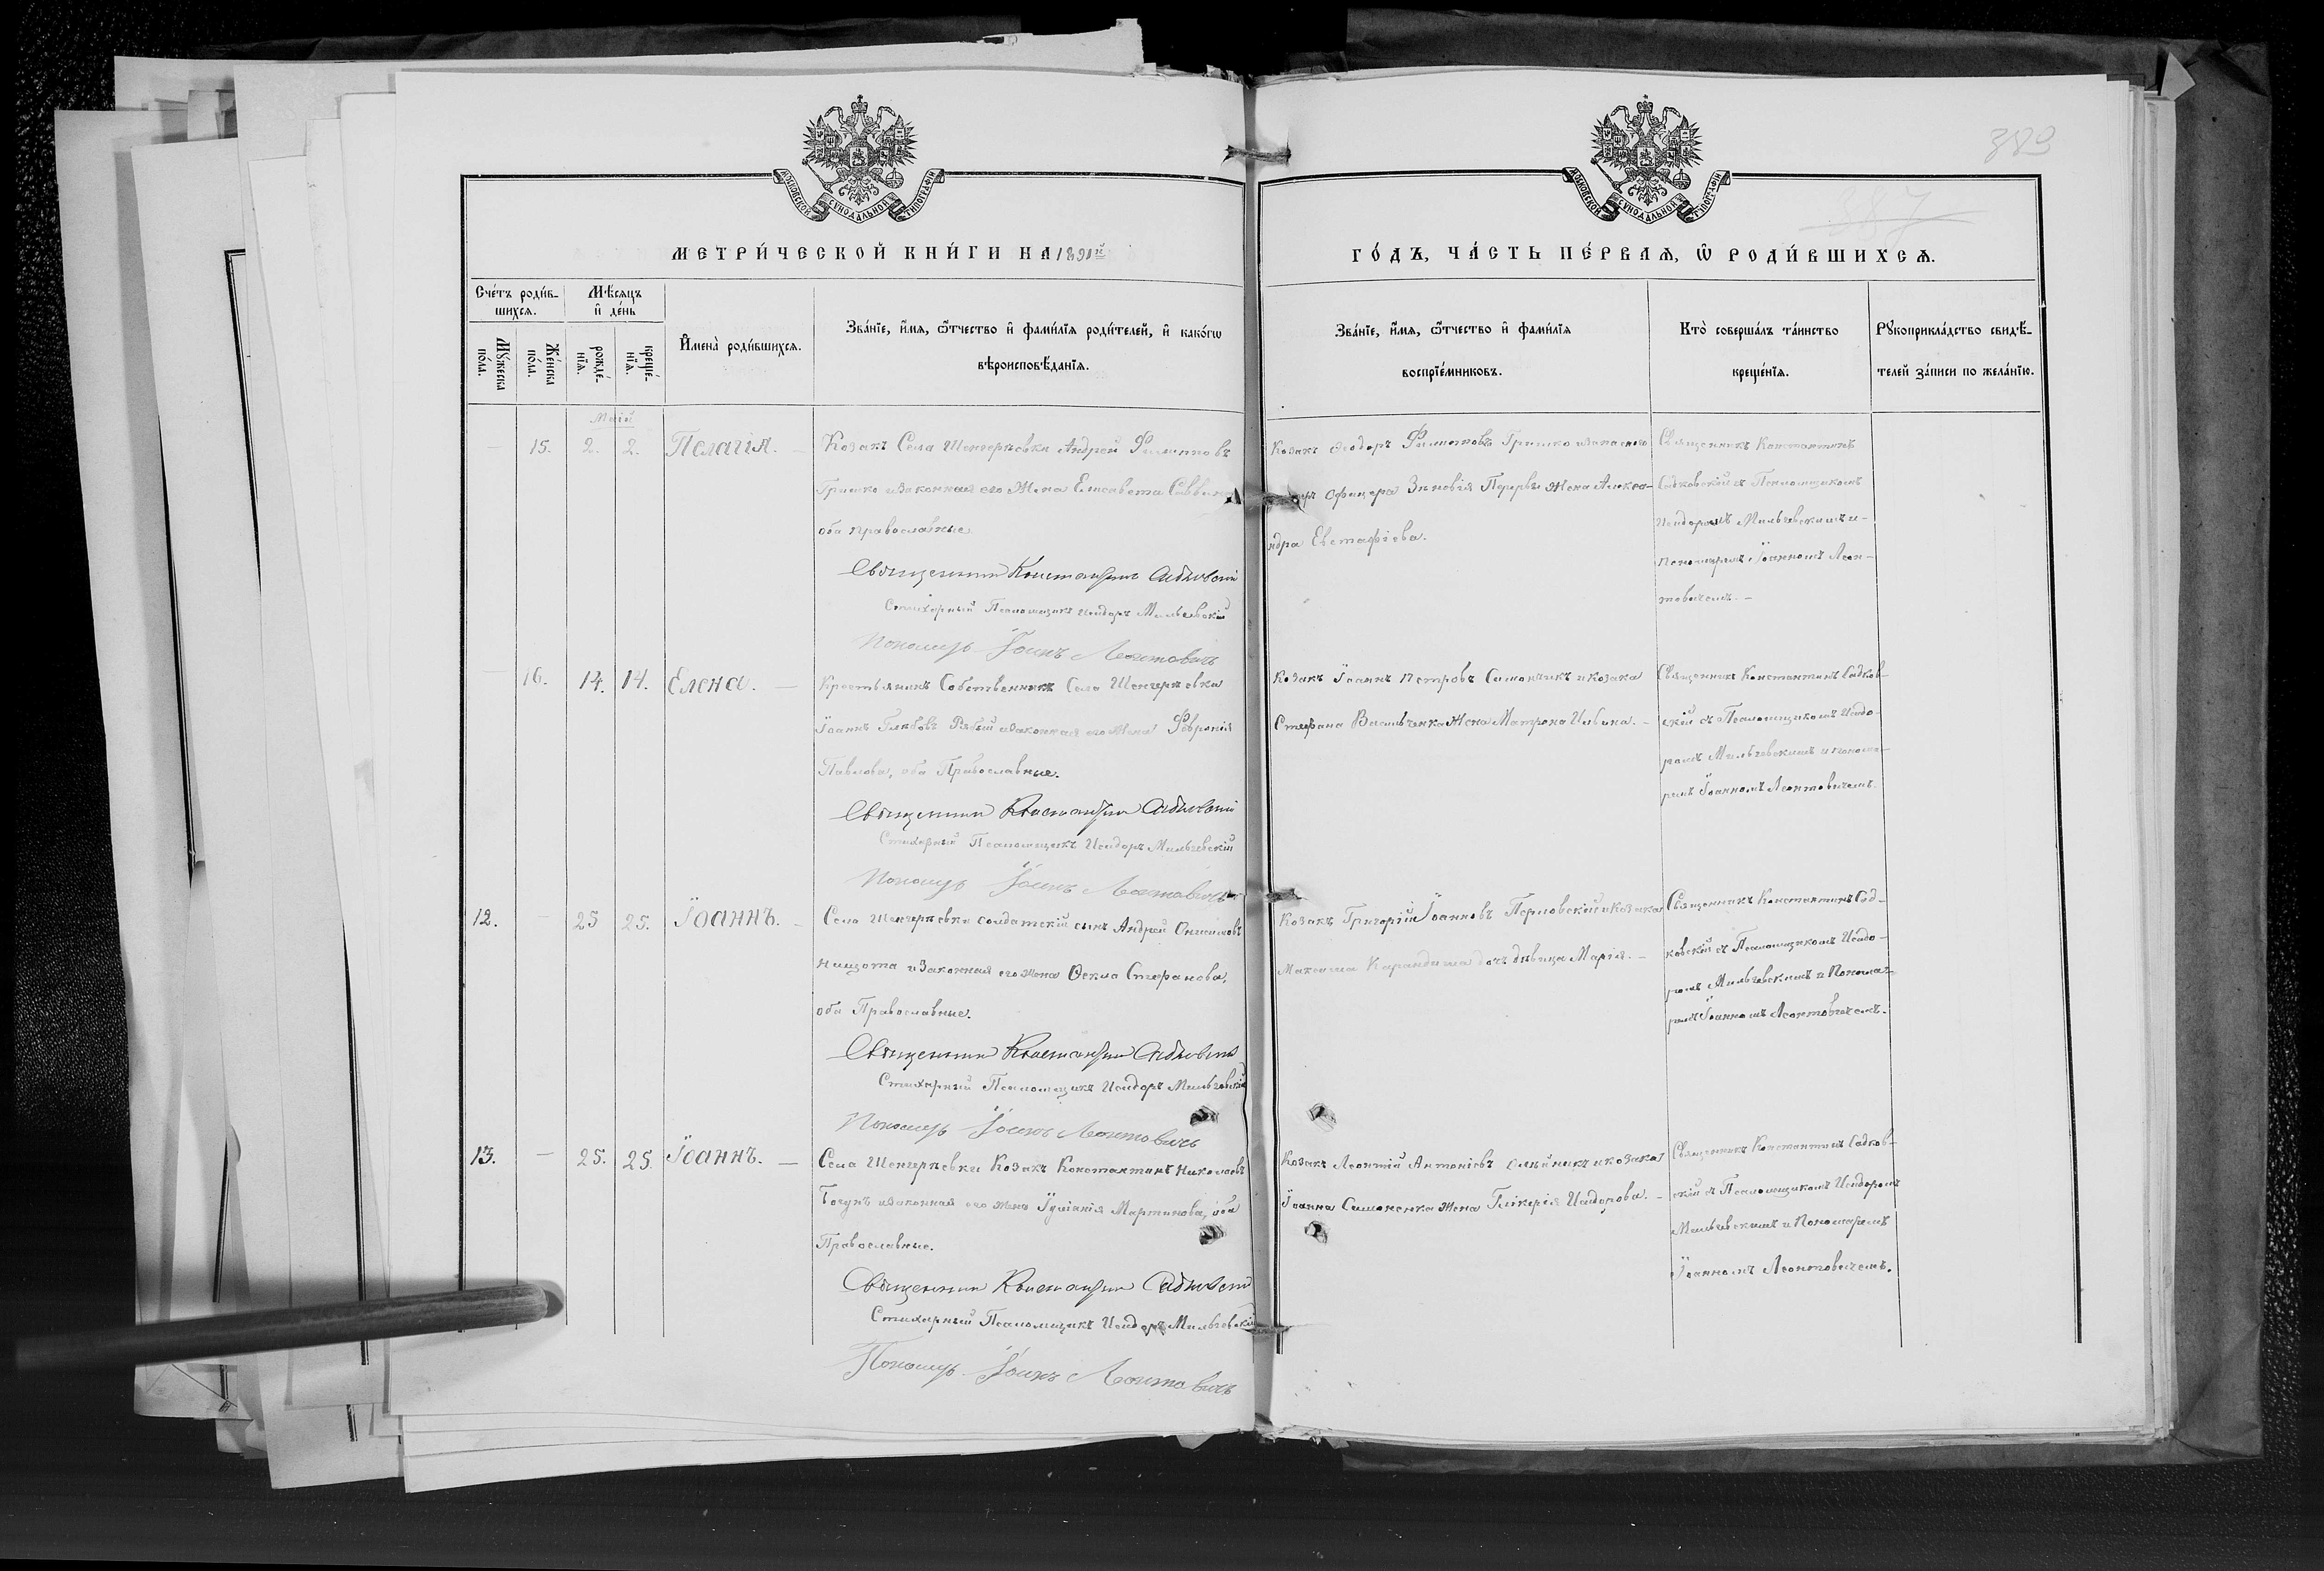 389
387
МОСКОВСКОЙ СУНОДАЛЬНОЙ ТИПОГРАФІИ
МОСКОВСКОЙ СУНОДАЛЬНОЙ ТИПОГРАФІИ
МЕТРИ́ЧЕСКОЙ КНИ́ГИ НА 1891й
ГО́ДЪ, ЧА́СТЬ ПЕ́РВАѦ, Ѡ РОДИ́ВШИХСѦ.
Сче́тъ роди́в-
шихсѧ.
Мѣ́сяцъ
и де́нь
Мꙋ́жеска
по́ла.
Же́нска
по́ла.
рожде́-
нїѧ.
креще́-
нїѧ.
Имена̀ роди́вшихсѧ.
Зва́нїе, и́мѧ, ѻ́тчество и фами́лїѧ роди́телей, и како́гѡ
вѣроисповѣ́данїѧ.
Зва́нїе, и́мѧ, ѻ́тчество и фами́лїѧ
воспрїе́мниковъ.
Кто̀ соверша́лъ та́инство
креще́нїѧ.
Рꙋкоприкла́дство свидѣ́-
телей за́писи по жела́нїю.
Май
15. 2. 2. Пелагія.
Козакъ Села Шенгерѣевки Андрей Филиповъ
Гришко изаконная его Жена Елисавета Саввина
оба православные
Священникъ Константинъ Садковскій
Стихарный Псаломщикъ Исидоръ Мильчевскій
Пономарь Іоаннъ Леонтовичъ
Козакъ Ѳеодоръ Филиповъ Гришко изапаснаго
офицера Зиновія Перервы Жена Алекса-
ндра Евстафіева.
Священникъ Константинъ
Садковскій съ Псаломщикомъ
Исидоромъ Мильчевскимъ и-
пономаремъ Іоанномъ Леон-
товичемъ.-
16. 14. 14. Елена.
Крестьянинъ Собственникъ Села Шенгерѣевки
Іоаннъ Глѣбовъ Рябый изаконная его Жена Февронія
Павлова, оба Православные.
Священникъ Константинъ Садковскій
Стихарный Псаломщикъ Исидоръ Мильчевскій
Пономарь Іоаннъ Леонтовичъ
Козакъ Іоаннъ Петровъ Симончикъ и козака
Стефана Васильченка Жена Матрона Ильина.-
Священникъ Константинъ Садков-
скій съ Псаломщикомъ Исидо-
ромъ Мильчевскимъ и понома-
ремъ Іоанномъ Леонтовичемъ.
12. 25 25. Іоаннъ.
Села Шенгерѣевки солдатскій сынъ Андрей Онисимовъ
Нищота изаконная его жена Ѳекла Стефанова,
оба Православные.
Священникъ Константинъ Садковскій
Стихарный Псаломщикъ Исидоръ Мильчевскій
Пономарь Іоаннъ Леонтовичъ
Козакъ Григорій Іоанновъ Перловскій и козака
Максима Карандаша дочь дѣвица Марія.-
Священникъ Константинъ Сад-
ковскій съ Псаломщикомъ Исидо-
ромъ Мильчевскимъ и Понома-
ремъ Іоанномъ Леонтовичемъ.
13. 25. 25. Іоаннъ.
Села Шенгерѣевки Козакъ Константинъ Николаевъ
Богунъ изаконная его жена Іуліанія Мартинова, оба
Православные.
Священникъ Константинъ Садковскій
Стихарный Псаломщикъ Исидоръ Мильчевскій
Пономарь Іоаннъ Леонтовичъ
Козакъ Леонтій Антоніевъ Олѣйникъ и козака
Іоанна Симоненка Жена Гликерія Исидорова.-
Священникъ Константинъ Садков-
скій съ Псаломщикомъ Исидоромъ
Мильчевскимъ и Пономаремъ
Іоанномъ Леонтовичемъ.